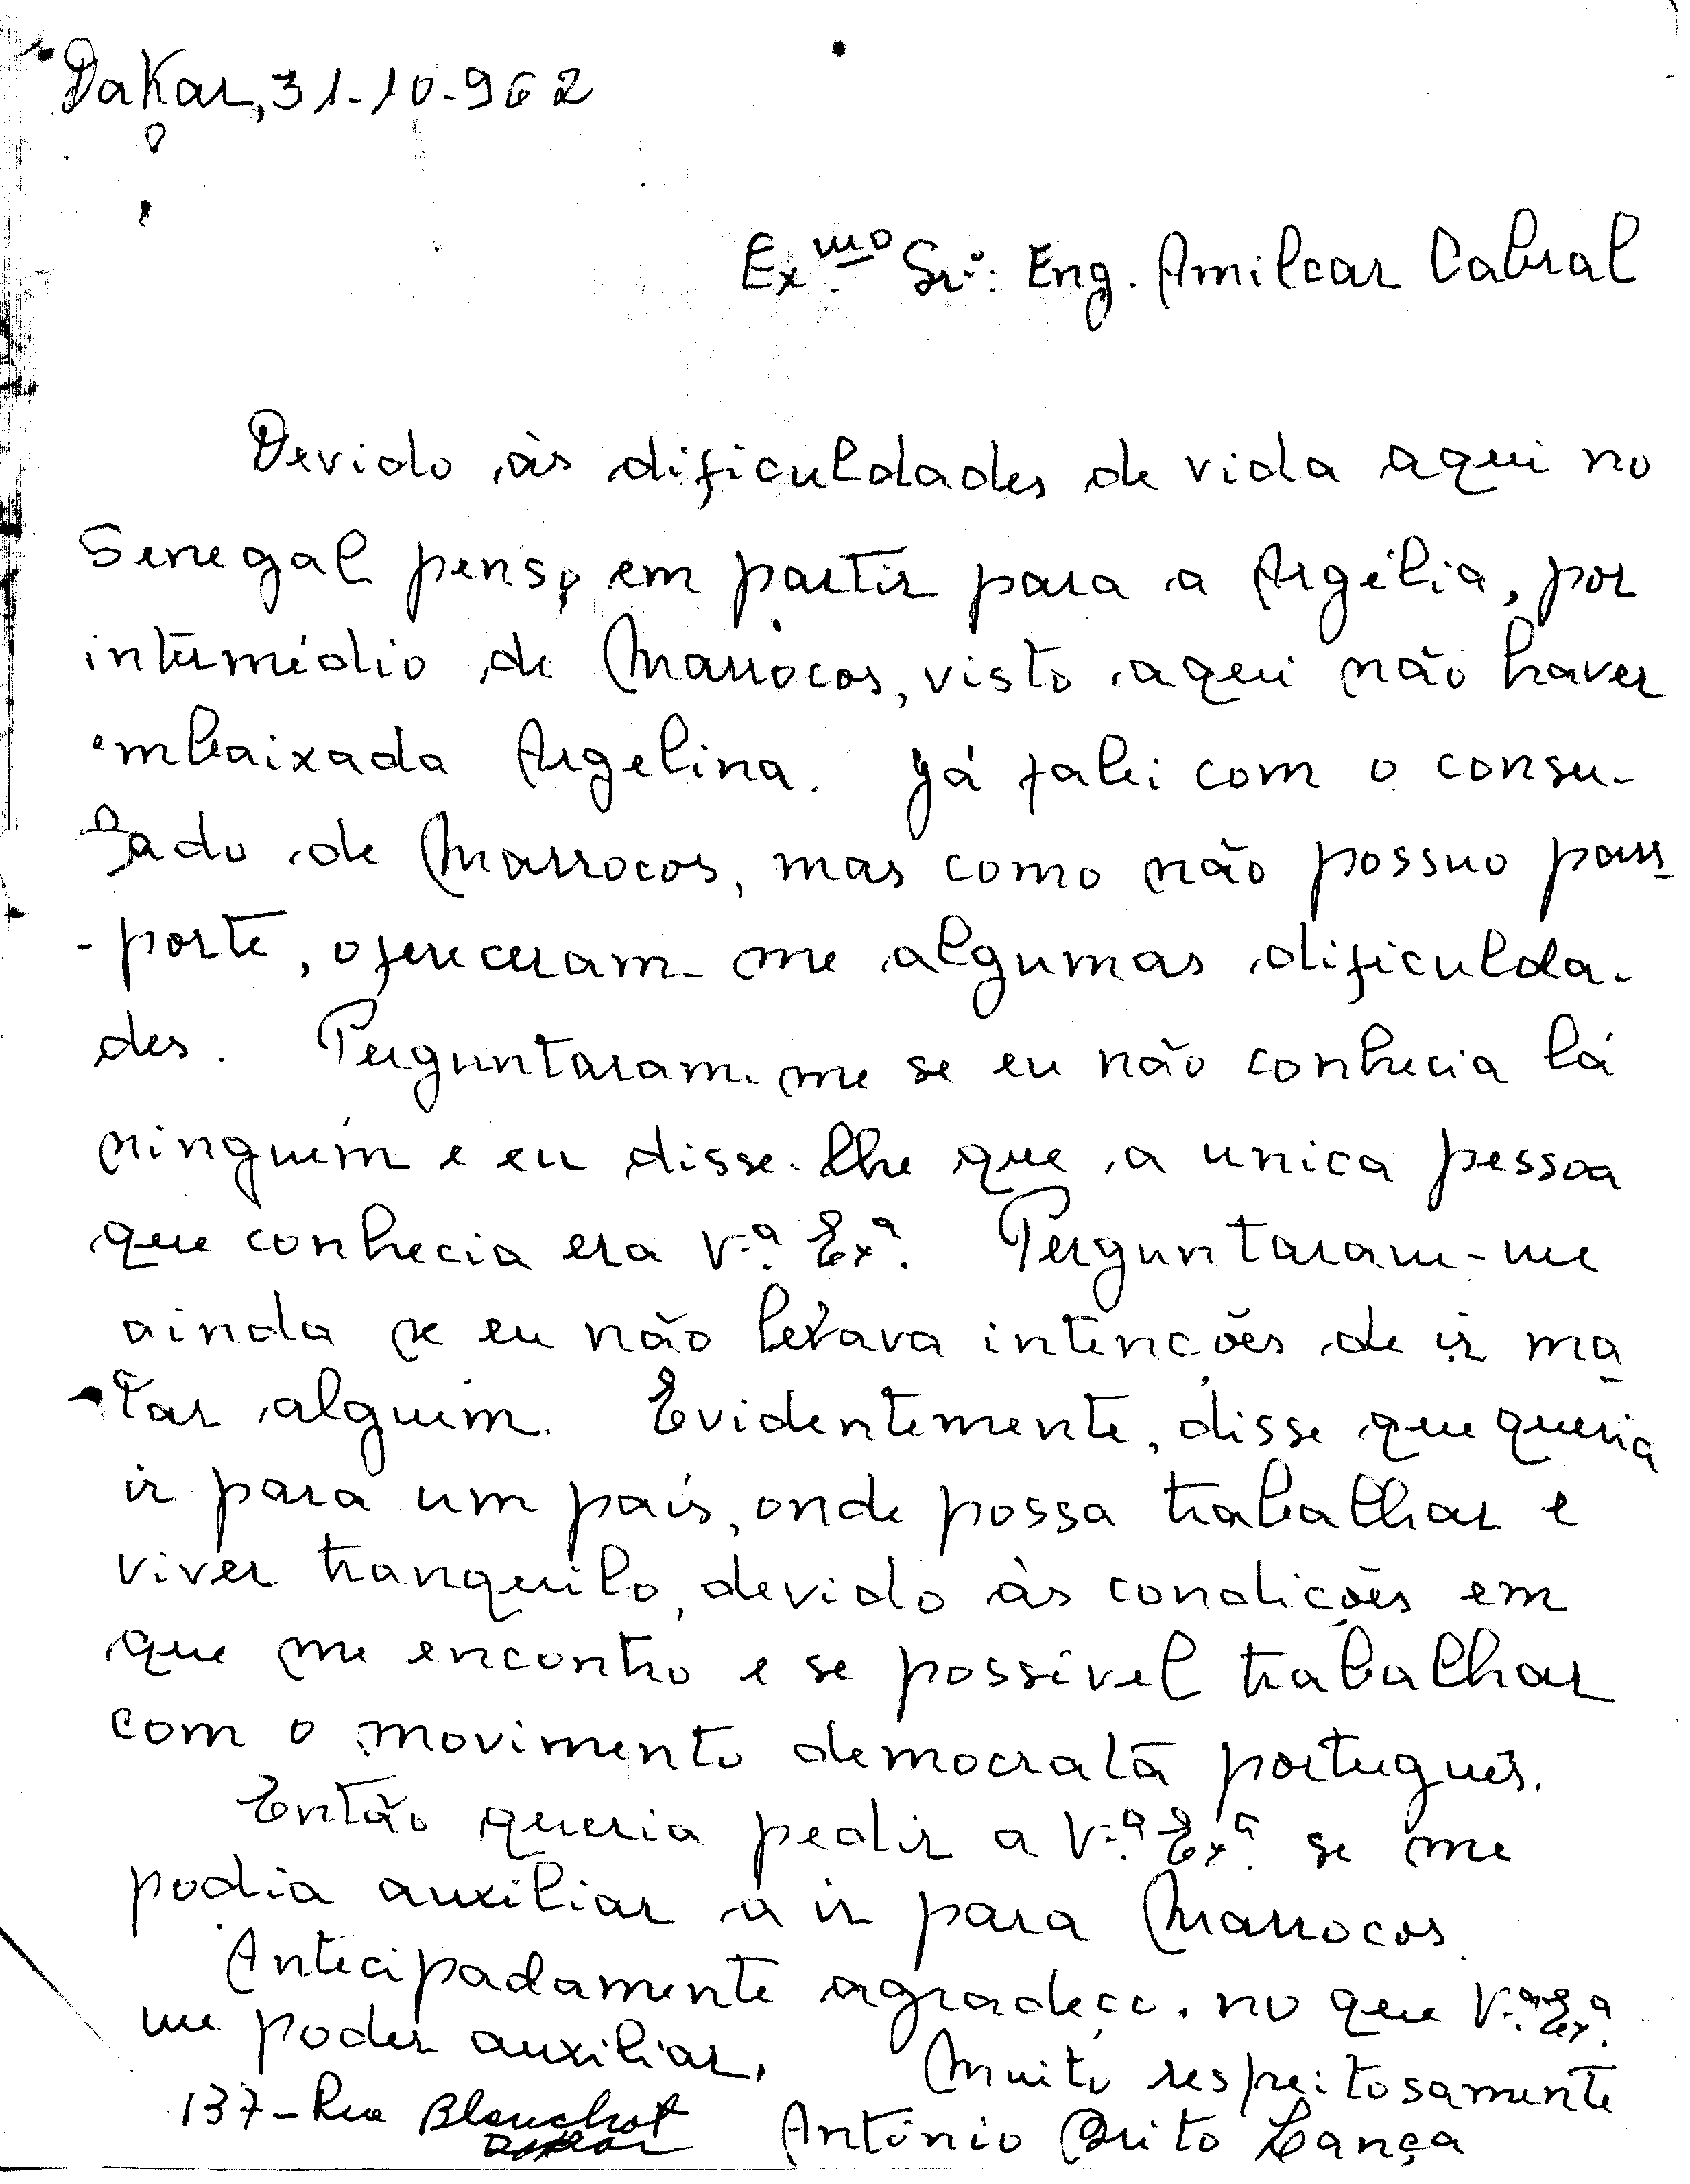 Dakar, 31-10-962
Ex.mo Sr.: Eng. Amilcar Cabral
Devido às dificuldades de vida aqui no
Senegal penso em partir para a Argélia, por
intermédio de Marrocos, visto aqui não haver
embaixada Argelina. Já falei com o consu-
lado de Marrocos, mas como não possuo pass-
-porte, ofereceram-me algumas dificulda-
des. Perguntaram-me se eu não conhecia lá
ninguém e eu disse-lhe que a unica pessoa
que conhecia era V.ª Ex.ª. Perguntaram-me
ainda se eu não levava intenções de ir ma-
tar alguém. Evidentemente, disse que queria
ir para um país, onde possa trabalhar e
viver tranquilo, devido às condições em
que me encontro e se possível trabalhar
com o movimento democrata português.
Então queria pedir a V.ª Ex.ª se me
podia auxiliar a ir para Marrocos.
Antecipadamente agradeço. no que V.ª Ex.ª
me poder auxiliar.
Muito respeitosamente
137-Rue Blanchot
Dakar
António Brito Lança